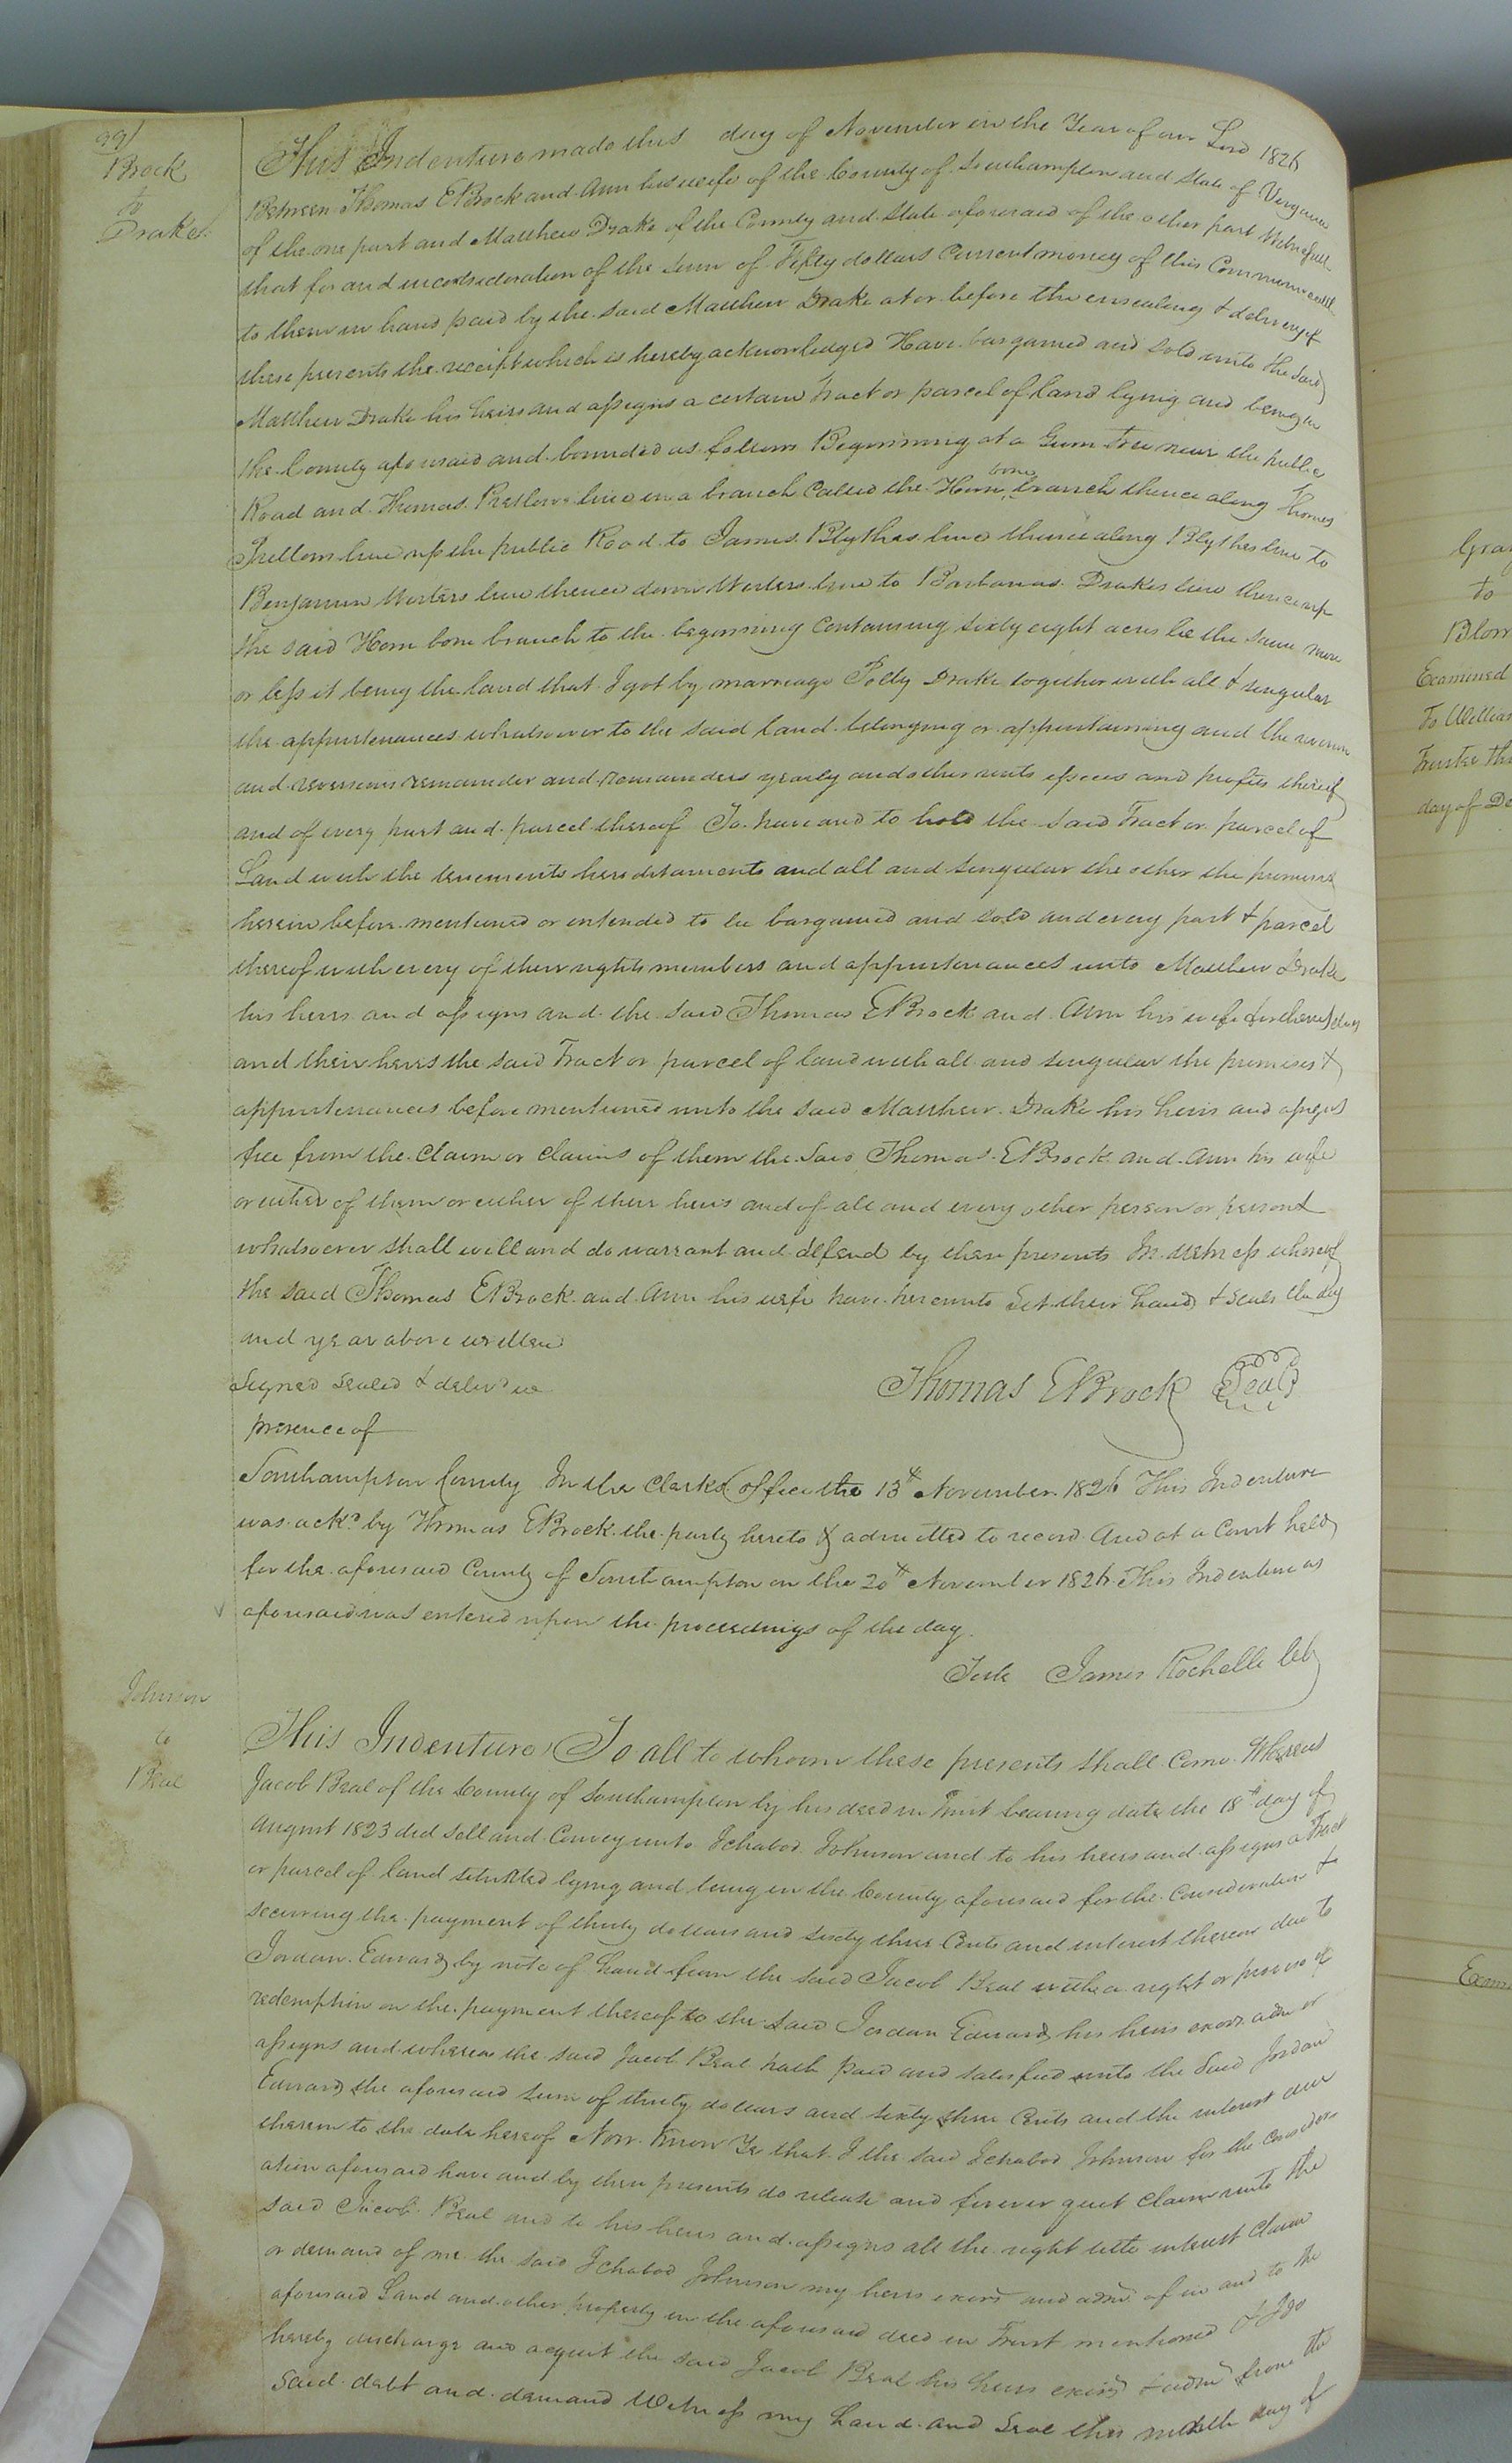 991
Brock
to
Drake
This Indenture made this day of November in the Year of our Lord 1826
Between Thomas E Brock and Ann his wife of the County of Southampton and State of Virginia
of the one part and Matthew Drake of the County and State aforesaid of the other part Witnesseth
that for and in consideration of the sum of Fifty dollars Current money of this Commonwealth
to them in hand paid by the said Matthew Drake at or before the ensealing & delivery of
these presents the receipt which is hereby acknowledged Have bargained and sold unto the said
Matthew Drake his heirs and assigns a certain Tract or parcel of land lying and being in
the County aforesaid and bounded as follows Beginning at a Gum Tree near the public
Road and Thomas Pretlows line in a branch Called the Horn bone branch thence along Thomas
Pretlows line up the public Road to James Blythes line thence along Blythes line to
Benjamin Worters line thence down Worters line to Barbaras Drakes line thence up
the said Horn bone branch to the beginning Containing sixty eight acres be the same more
or less it being the land that I got by marriage Polly Drake together with all & singular
the appurtenances whatsoever to the said land belonging or appurtaining and the reversion
and reversions remainder and remainders yearly and other rents issues and profits thereof
and of every part and parcel thereof To have and to hold the said Tract or parcel of
Land with the tenements hereditaments and all and singular the other the premises
herein before mentioned or intended to be bargained and sold and every part & parcel
thereof with every of their rights members and appurtenances unto Matthew Drake
his heirs and assigns and the said Thomas E Brock and Ann his wife for themselves
and their heirs the said Tract or parcel of land with all and singular the premises &
appurtenances before mentioned unto the said Matthew Drake his heirs and assigns
free from the Claim or Claims of them the said Thomas E Brock and Ann his wife
or either of them or either of their heirs and of all and every other person or persons
whatsoever shall will and do warrant and defend by these presents In witness whereof
the said Thomas E Brock and Ann his wife have hereunto Set their hands & seals the day
and year above written
Signed sealed & deliv'd in
presence of
Thomas E Brock Seal
Southampton County In the Clerks Office the 13th November 1826 This Indenture
was ackd by Thomas E Brock the party hereto & admitted to record And at a Court held
for the aforesaid County of Southampton on the 20th November 1826 This Indenture as
aforesaid was entered upon the proceedings of the day.
Teste James Rochelle
Johnson
to
Beal
This Indenture To all to whom these presents shall Come Whereas
Jacob Beal of the County of Southampton by his deed in Trust bearing date the 18th day of
August 1823 did sell and Convey unto Ichabod Johnson and to his heirs and assigns a Tract
or parcel of land situated lying and being in the County aforesaid for the Consideration &
securing the payment of thirty dollars and sixty three Cents and interest thereon due to
Jordan Edwards by note of hand from the said Jacob Beal with a right or proviso of
redemption on the payment thereof to the said Jordan Edwards his heirs exors adm or
assigns and whereas the said Jacob Beal hath paid and satisfied unto the Said Jordan
Edwards the aforesaid sum of thirty dollars and sixty three Cents and the interest due
thereon to the date hereof Now Know Ye that I the said Ichabod Johnson for the consider
ation aforesaid have and by these presents do release and forever quit Claim unto the
said Jacob Beal and to his heirs and assigns all the right title interest Claim
or demand of me the said Ichabod Johnson my heirs exors and adm of in and to the
aforesaid Land and other property in the aforesaid deed in Trust mentioned & I do
hereby discharge and acquit the said Jacob Beal his heirs exors & adm from the
said debt and demand Witness my hand and Seal this day of
to
Examined
day of De